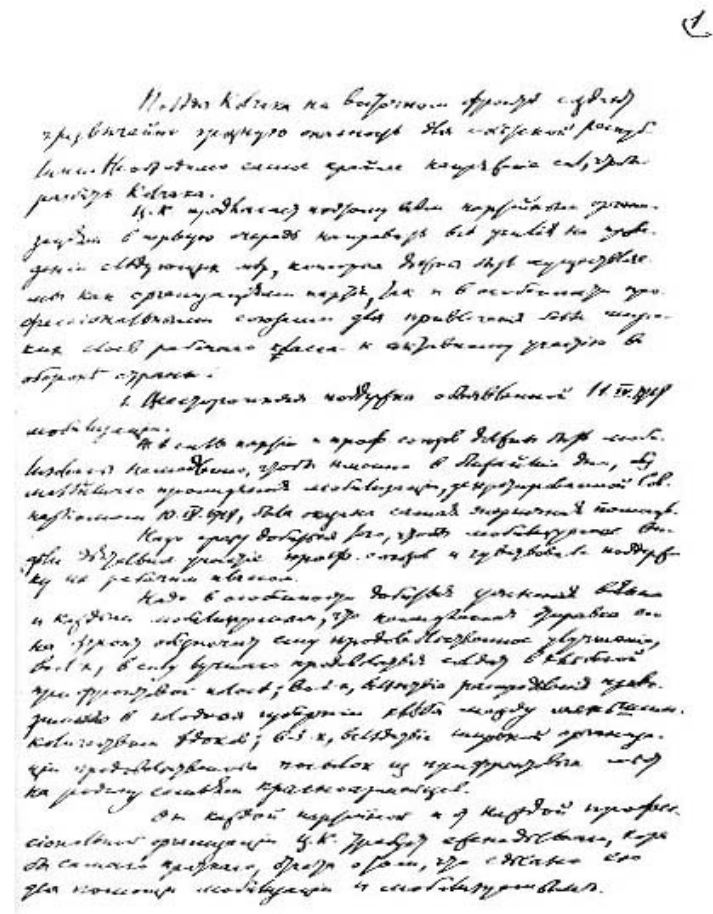 1
Победы Колчака на Восточном фронте создают
чрезвычайно грозную опасность для Советской респуб
лики. Необходимо самое крайнее напряжение сил, чтобы
разбить Колчака.
Ц.К. предлагает поэтому всем партийным органи-
зациям в первую очередь направить все усилия на прове-
дение следующих мер, которые должны быть осуществляе-
мы как организациями партии, так и в особенности про-
фессиональными союзами для привлечения более широ-
ких слоев рабочего класса к активному участию в
обороне страны:
1. Всесторонняя поддержка объявленной 11.IV.1919
мобилизации.
Все силы партии и проф. союзов должны быть моби-
лизованы немедленно, чтобы именно в ближайшие дни, без
малейшего промедления мобилизации, декретированной Сов-
наркомом 10.IV.1919, была оказана самая энергичная помощь.
Надо сразу добиться того, чтобы мобилизуемые ви-
дели участие проф. союзов и чувствовали поддерж-
ку их рабочим классом.
Надо в особенности добиться уяснения всеми
и каждым мобилизуемым, что немедленная отправка его
на фронт обеспечит ему продовольственное улучшение,
во 1-х, в силу лучшего продовольствия солдат в хлебной
прифронтовой полосе; во 2-х, вследствие распределения приво-
зимого в голодные губернии хлеба между меньшим
количеством едоков; в 3-х, вследствие широкой организа-
ции продовольственных посылок из прифронтовых мест
на родину семьям красноармейцев.
От каждой партийной и от каждой профес-
сиональной организации Ц.К. требует еженедельного, хотя
бы самого краткого, отчета о том, что сделано ею
для помощи мобилизации и мобилизуемым.